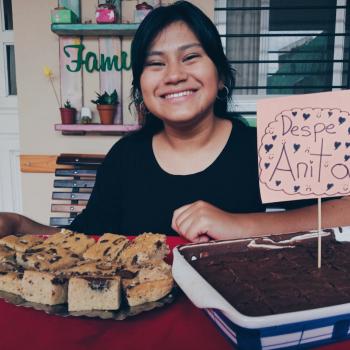 Family
Despe
Anita